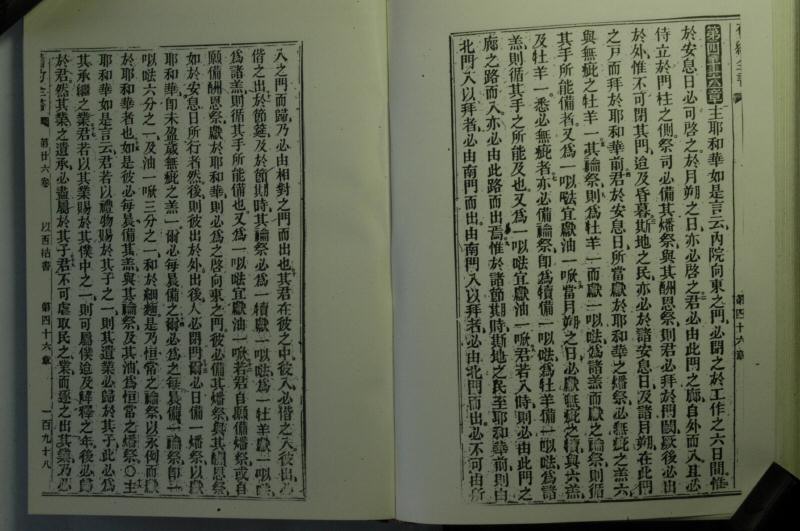 舊約全書
第四十六章
第四十六章主耶和華如是言云內院向東之門必閉之於工作之六日間惟
於安息日必可啓之於月朔之日亦必啓之君必由此門之廊自外而入且必
侍立於門柱之側祭司必備其燔祭與其酬恩祭則君必拜於門閾厥後必出
於外惟不可閉其門迨及昏暮斯地之民亦必於諸安息日及諸月朔在此門
之戸而拜於耶和華前君於安息日所當獻於耶和華之燔祭必無疵之羔六
與無疵之牡羊一其論祭則爲牡羊一而獻一以咕爲諸羔而獻之論祭則循
其手所能備者又爲一以咕宜獻油一㗅當月朔之日必獻無疵之犢與六羔
及牡羊一悉必無疵者亦必備論祭卽爲犢備一以咕爲牡羊備一以咕爲諸
羔則循其手之所能及也又爲一以咕宜獻油一㗅君若入時則必由此門之
廊之路而入亦必由此路而出焉惟於諸節期時斯地之民至耶和華前則自
北門入以拜者必由南門而出由南門入以拜者必由北門而出必不可由所
入之門而歸乃必由相對之門而出也其君在彼之中彼入必偕之入彼出必
偕之出於節筵及於節期時其論祭必爲一犢獻一以咕爲一牡羊獻一以咕
爲諸羔則循其手所能備也又爲一以咕宜獻油一㗅若君自願備燔祭或自
願備酬恩祭獻於耶和華則必爲之啓向東之門彼必備其燔祭與其酬恩祭
如於安息日所行者然後則彼出於外出後人必閉門爾必日備一燔祭以獻
耶和華卽未盈歲無疵之羔一爾必每晨備之爾必爲之每晨備一論祭卽一
以咕六分之一及油一㗅三分之一和於細麵是乃恒常之論祭以永例而獻
於耶和華者也如是彼必每晨備其羔與其論祭及其油爲恒常之燔祭○主
耶和華如是言云君若以禮物賜於其子之一則其遺業必歸於其子此必爲
其承繼之業君若以其業賜於其僕中之一則可屬僕迨及釋之年後必歸
於君然其業之遺承必盡屬於其子君不可虐取民之業而逐之出其業乃必
舊約全書
第廿六卷
以西結書
第四十六章
一百九十八